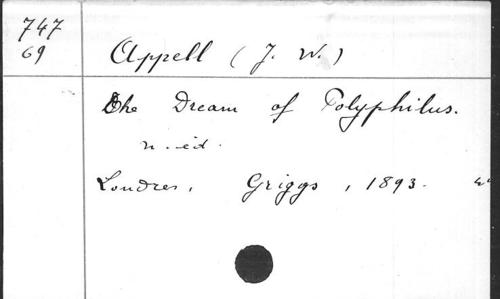 747
69
Appell (J. W.)
The Dream of Polyphilus.
n. éd.
Londres, Griggs, 1893. 4°